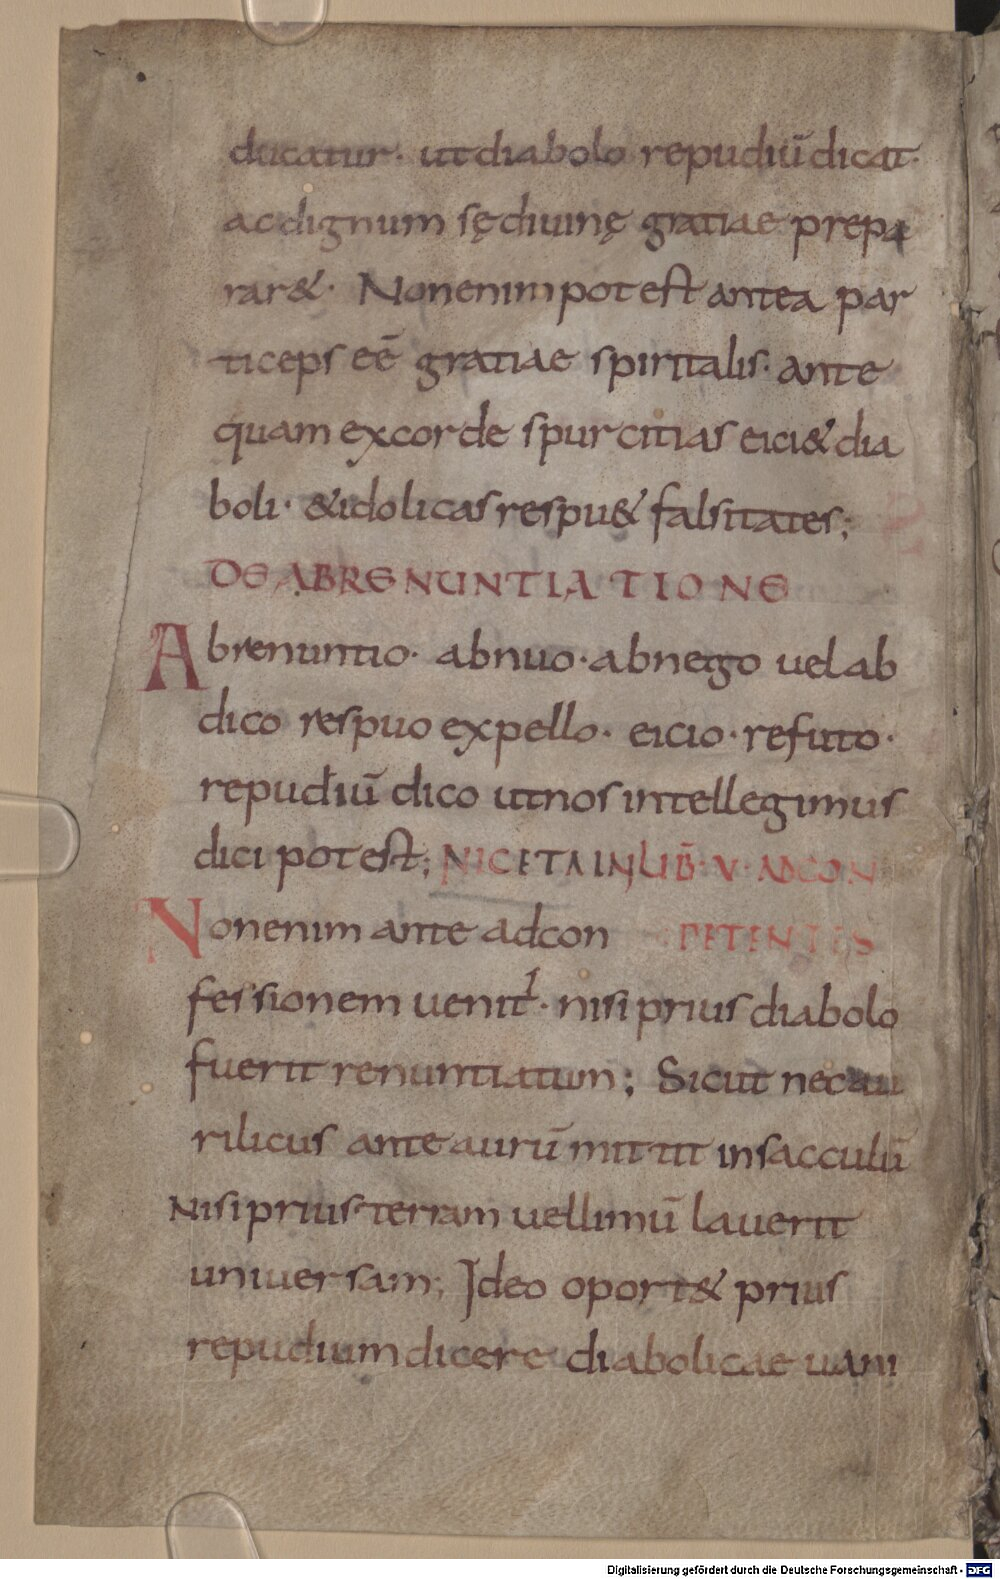 ducatur· ut diabolo repudiū dicat·
ac dignum sę diuinę gratiae prepa
rar&· Non enim potest antea par
ticeps eē gratiae spiritalis· ante
quam ex corde spurcitias eici& dia
boli· & idolicas respu& falsitates;
DE ABRENUNTIATIONE
Abrenuntio· abnuo· abnego uel ab
dico respuo expello· eicio· refuto·
repudiū dico ut nos intellegimus
dici potest; NICETA IN LIB̄· V· AD CON
Non enim ante ad con PETENTES
fessionem uenit᷒· nisi prius diabolo
fuerit renuntiatum; Sicut nec au
rilicus ante aurū mittit in sacculū
Nisi prius terram uel limū lauerit
uniuersam; Ideo oport& prius
repudium dicere diabolicae uani
Digitalisierung gefördert durch die Deutsche Forschungsgemeinschaft - DFG